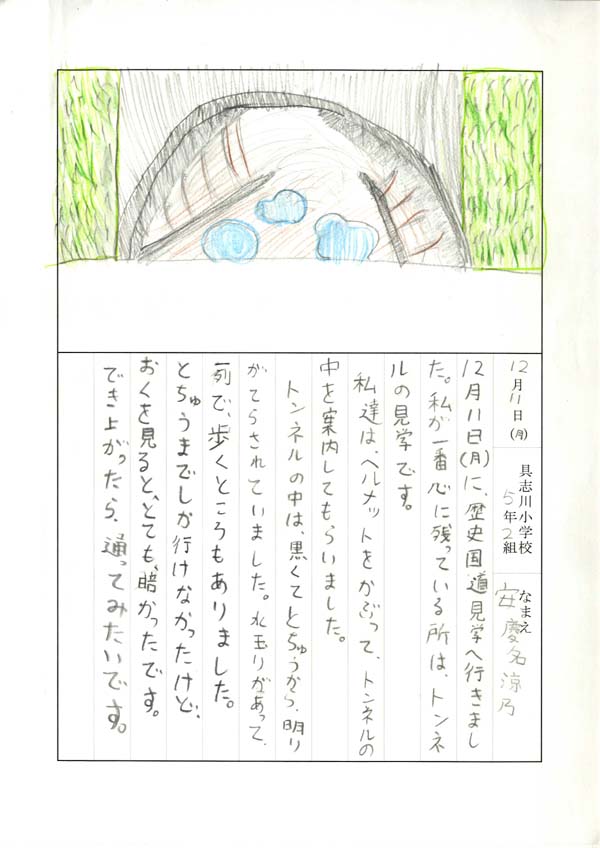 12月11日(月)
具志川小学校
5年2組
なまえ
安慶名涼乃
12月11日(月)に、歴史国道見学へ行きまし
た。私が一番心に残っている所は、トンネ
ルの見学です。
私達は、ヘルメットをかぶって、トンネルの
中を案内してもらいました。
トンネルの中は、黒くてとちゅうから、明り
がてらされていました。水玉りがあって、
一列で、歩くところもありました。
とちゅうまでしか行けなかったけど、
おくを見ると、とても、暗かったです。
でき上がったら、通ってみたいです。